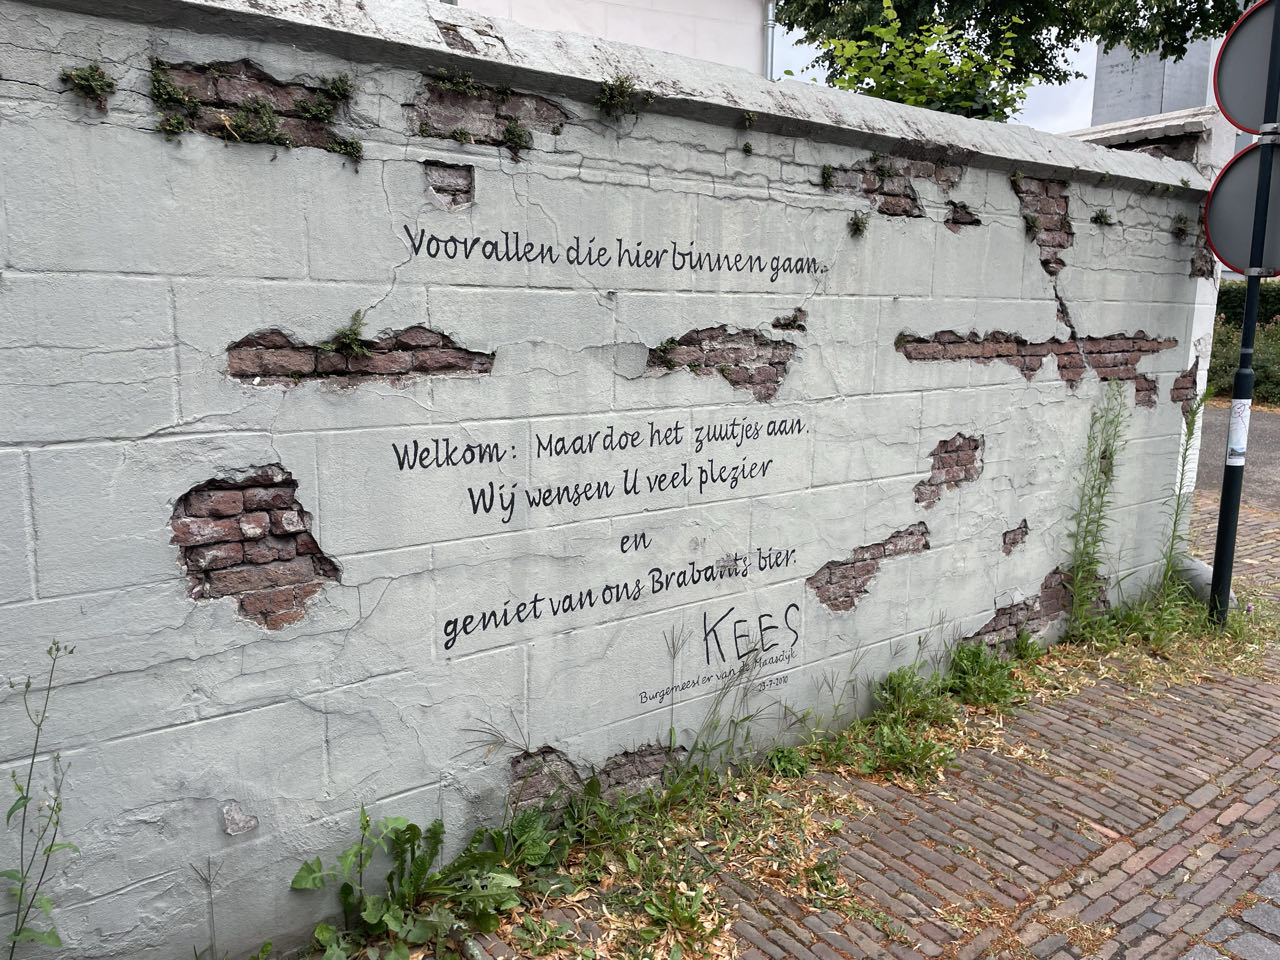 Voor allen die hier binnen gaan.
Welkom: Maar doe het zuutjes aan.
Wij wensen U veel plezier
en
geniet van ons Brabants bier.
KEES
Burgemeester van de Maasdijk
23-7-2010